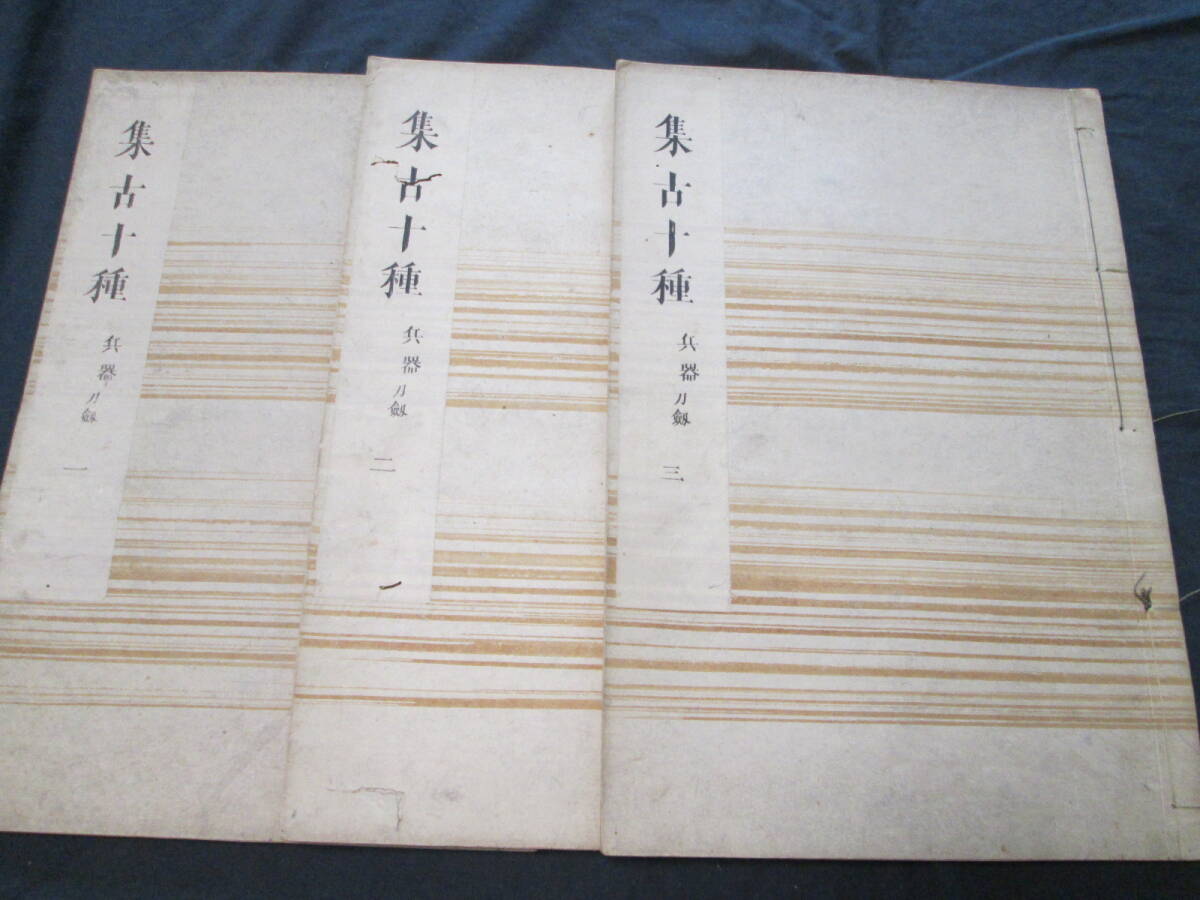 集古十種 兵器刀劔 一
集古十種 兵器刀劔 二
集古十種 兵器刀劔 三